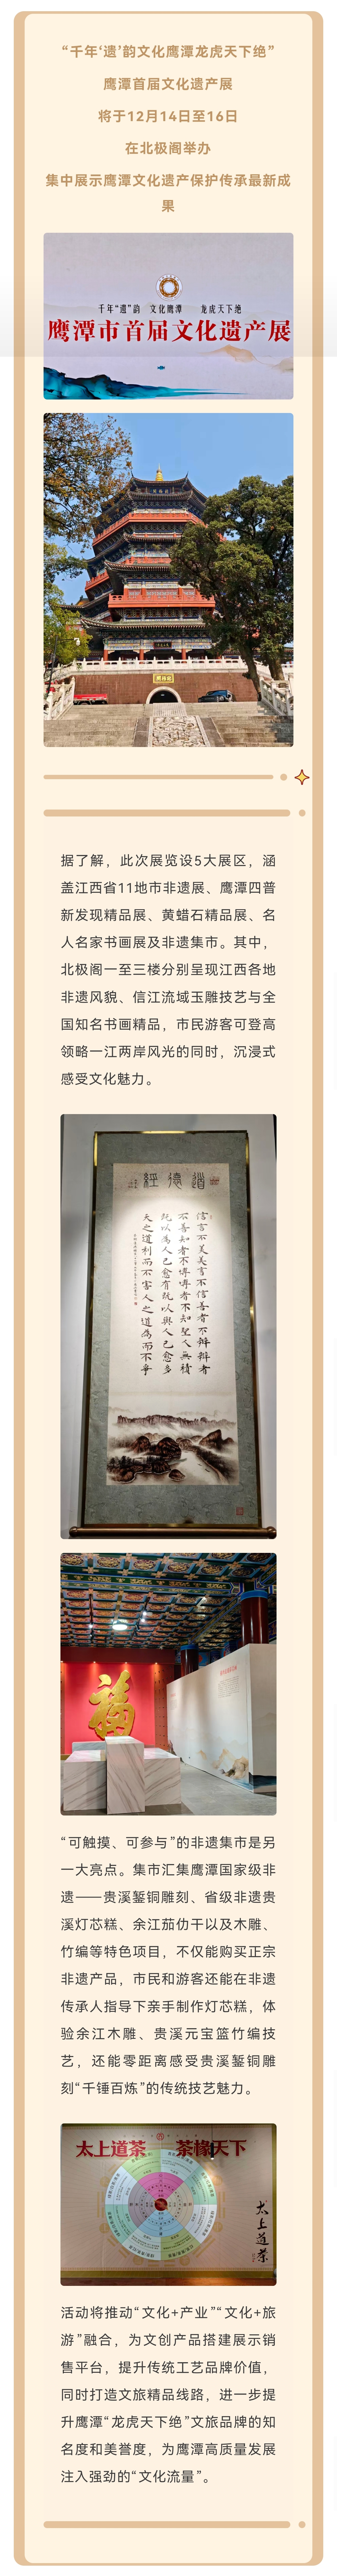 “千年‘遗’韵文化鹰潭龙虎天下绝”
鹰潭首届文化遗产展
将于12月14日至16日
在北极阁举办
集中展示鹰潭文化遗产保护传承最新成
果
千年“遗”韵 文化鹰潭 龙虎天下绝
鹰潭市首届文化遗产展
据了解，此次展览设5大展区，涵
盖江西省11地市非遗展、鹰潭四普
新发现精品展、黄蜡石精品展、名
人名家书画展及非遗集市。其中，
北极阁一至三楼分别呈现江西各地
非遗风貌、信江流域玉雕技艺与全
国知名书画精品，市民游客可登高
领略一江两岸风光的同时，沉浸式
感受文化魅力。
道德經
信言不美美言不信善者不辩辩者
不善知者不博博者不知聖人無積
既以為人己愈有既以與人己愈多
天之道利而不害人之道為而不爭
福
“可触摸、可参与”的非遗集市是另
一大亮点。集市汇集鹰潭国家级非
遗——贵溪錾铜雕刻、省级非遗贵
溪灯芯糕、余江茄仂干以及木雕、
竹编等特色项目，不仅能购买正宗
非遗产品，市民和游客还能在非遗
传承人指导下亲手制作灯芯糕，体
验余江木雕、贵溪元宝篮竹编技
艺，还能零距离感受贵溪錾铜雕
刻“千锤百炼”的传统技艺魅力。
太上道茶 茶缘天下
太上道茶
活动将推动“文化+产业”“文化+旅
游”融合，为文创产品搭建展示销
售平台，提升传统工艺品牌价值，
同时打造文旅精品线路，进一步提
升鹰潭“龙虎天下绝”文旅品牌的知
名度和美誉度，为鹰潭高质量发展
注入强劲的“文化流量”。